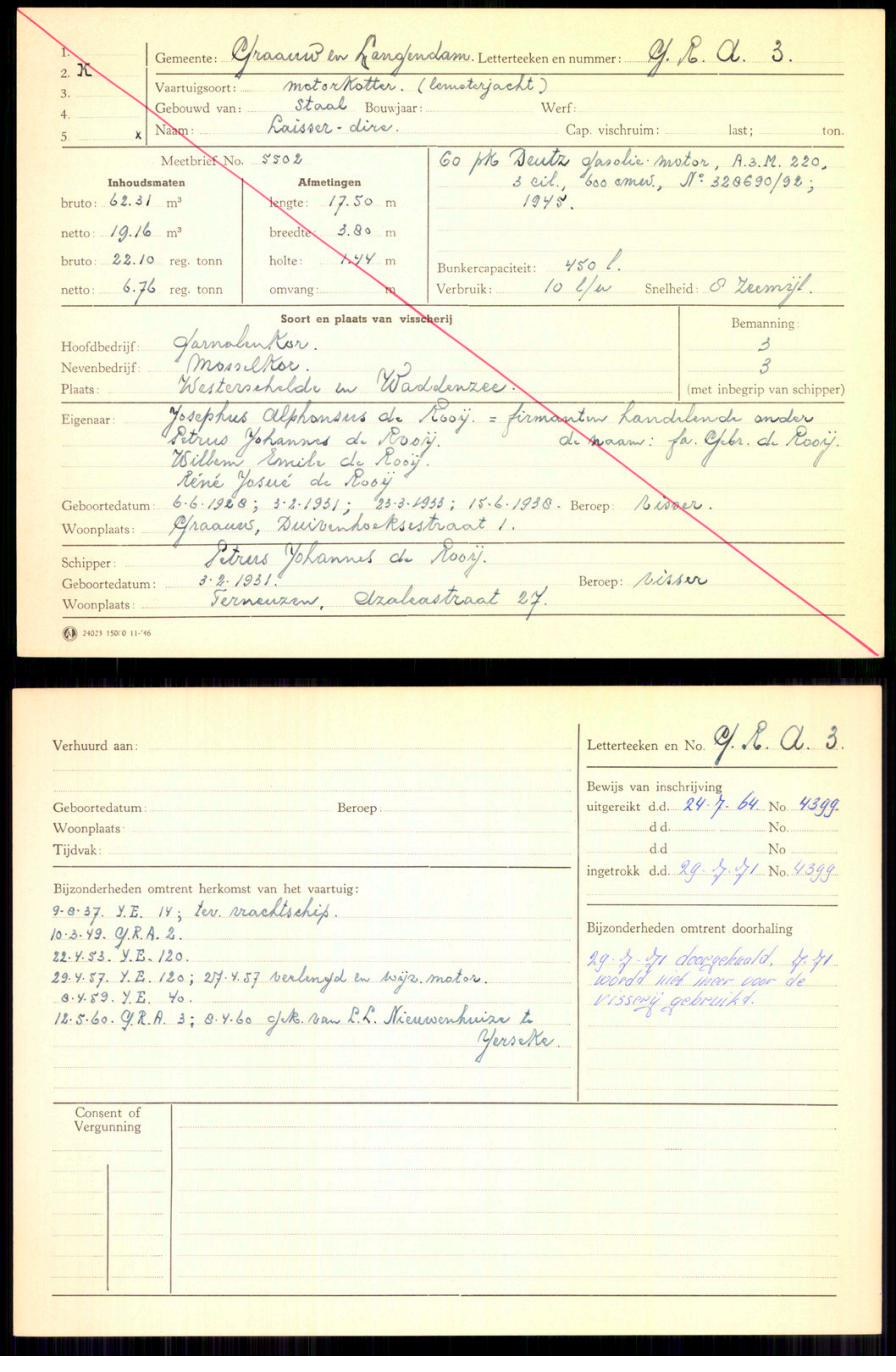 1.
2. K
3.
4.
5. x
Gemeente: Graauw en Langendam. Letterteeken en nummer: G. R. A. 3.
Vaartuigsoort: motorkotter. (lemsterjacht)
Gebouwd van: Staal Bouwjaar: Werf:
Naam: Laisser-dire. Cap. vischruim: last; ton.
Meetbrief No. 5502
Inhoudsmaten
bruto: 62.31 m³
netto: 19.16 m³
bruto: 22.10 reg. tonn
netto: 6.76 reg. tonn
Afmetingen
lengte: 17.50 m
breedte: 3.80 m
holte: 1.44 m
omvang: m
60 pk Deutz gasolie-motor, A.3.M. 220,
3 cil., 600 omw., No 328690/92;
1945.
Bunkercapaciteit: 450 l.
Verbruik: 10 l/u Snelheid: 8 Zeemijl.
Soort en plaats van visscherij
Hoofdbedrijf: Garnalenkor.
Nevenbedrijf: Mosselkor.
Plaats: Westerschelde en Waddenzee.
Bemanning:
3
3
(met inbegrip van schipper)
Eigenaar: Josephus Alphonsus de Rooij. = firmanten handelende onder
Petrus Johannes de Rooij. de naam: fa. Gebr. de Rooij.
Willem Emile de Rooij.
Réné Josué de Rooij
Geboortedatum: 6-6-1928; 3-2-1931; 23-3-1933; 15-6-1938. Beroep: visser.
Woonplaats: Graauw, Duivenhoeksestraat 1.
Schipper: Petrus Johannes de Rooij.
Geboortedatum: 3-2-1931. Beroep: visser
Woonplaats: Terneuzen, Azaleastraat 27.
24023 15000 11-'46
Verhuurd aan:
Geboortedatum: Beroep:
Woonplaats:
Tijdvak:
Bijzonderheden omtrent herkomst van het vaartuig:
9-8-37. Y.E. 14; tev. vrachtschip.
10-3-49. G.R.A. 2.
22-4-53. Y.E. 120.
29-4-57. Y.E. 120; 27-4-57 verlengd en wijz. motor.
8-4-59. Y.E. 40.
12-5-60. G.R.A. 3; 8-4-60 gek. van L.L. Nieuwenhuize te
Yerseke.
Letterteeken en No. G. R. A. 3.
Bewijs van inschrijving
uitgereikt d.d. 24-7-64. No. 4399.
d d. No.
d d No
ingetrokk d.d. 29-7-71 No. 4399
Bijzonderheden omtrent doorhaling
29-7-71 doorgehaald. 7-71
wordt niet meer voor de
visserij gebruikt.
Consent of
Vergunning